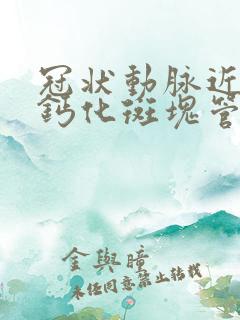 冠狀動脈近
鈣化斑塊管
金與瞳
未经同意禁止转载